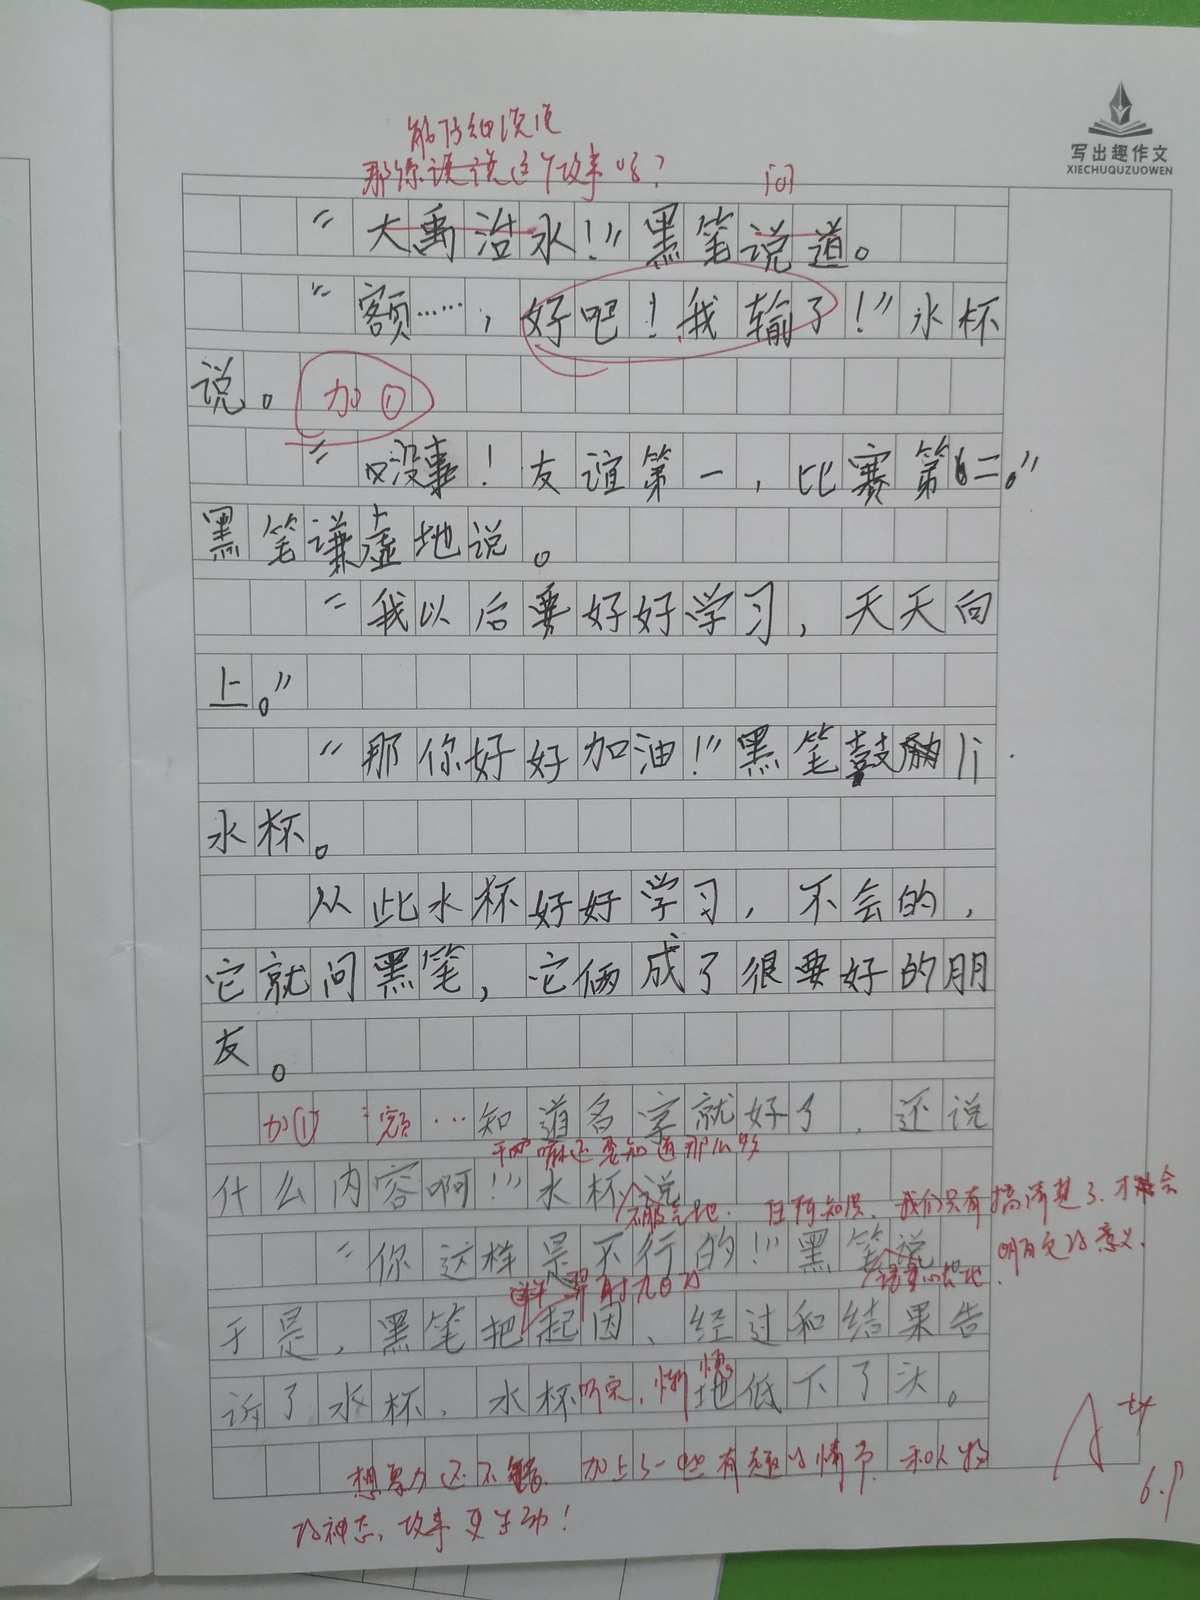 写出趣作文
XIECHUQUZUOWEN
能仔细说说
那你说说这个故事呗？
问
“大禹治水！”黑笔说道。
“额……，好吧！我输了！”水杯
说。 加①
“没事！友谊第一，比赛第二。”
黑笔谦虚地说。
“我以后要好好学习，天天向
上。”
“那你好好加油！”黑笔鼓励
水杯。
从此水杯好好学习，不会的，
它就问黑笔，它俩成了很要好的朋
友。
加① “额…知道名字就好了，还说
干嘛还要知道那么多
什么内容啊！”水杯说
不服气地.
任何知识，我们只有搞清楚了，才会
明白它的意义.
“你这样是不行的！”黑笔说
语重心长地.
羿射九日的
于是，黑笔把起因、经过和结果告
诉了水杯，水杯听完，惭愧地低下了头。
想象力还不错，加上一些有趣的情节，和人物
的神态，故事更生动！
A
6.9